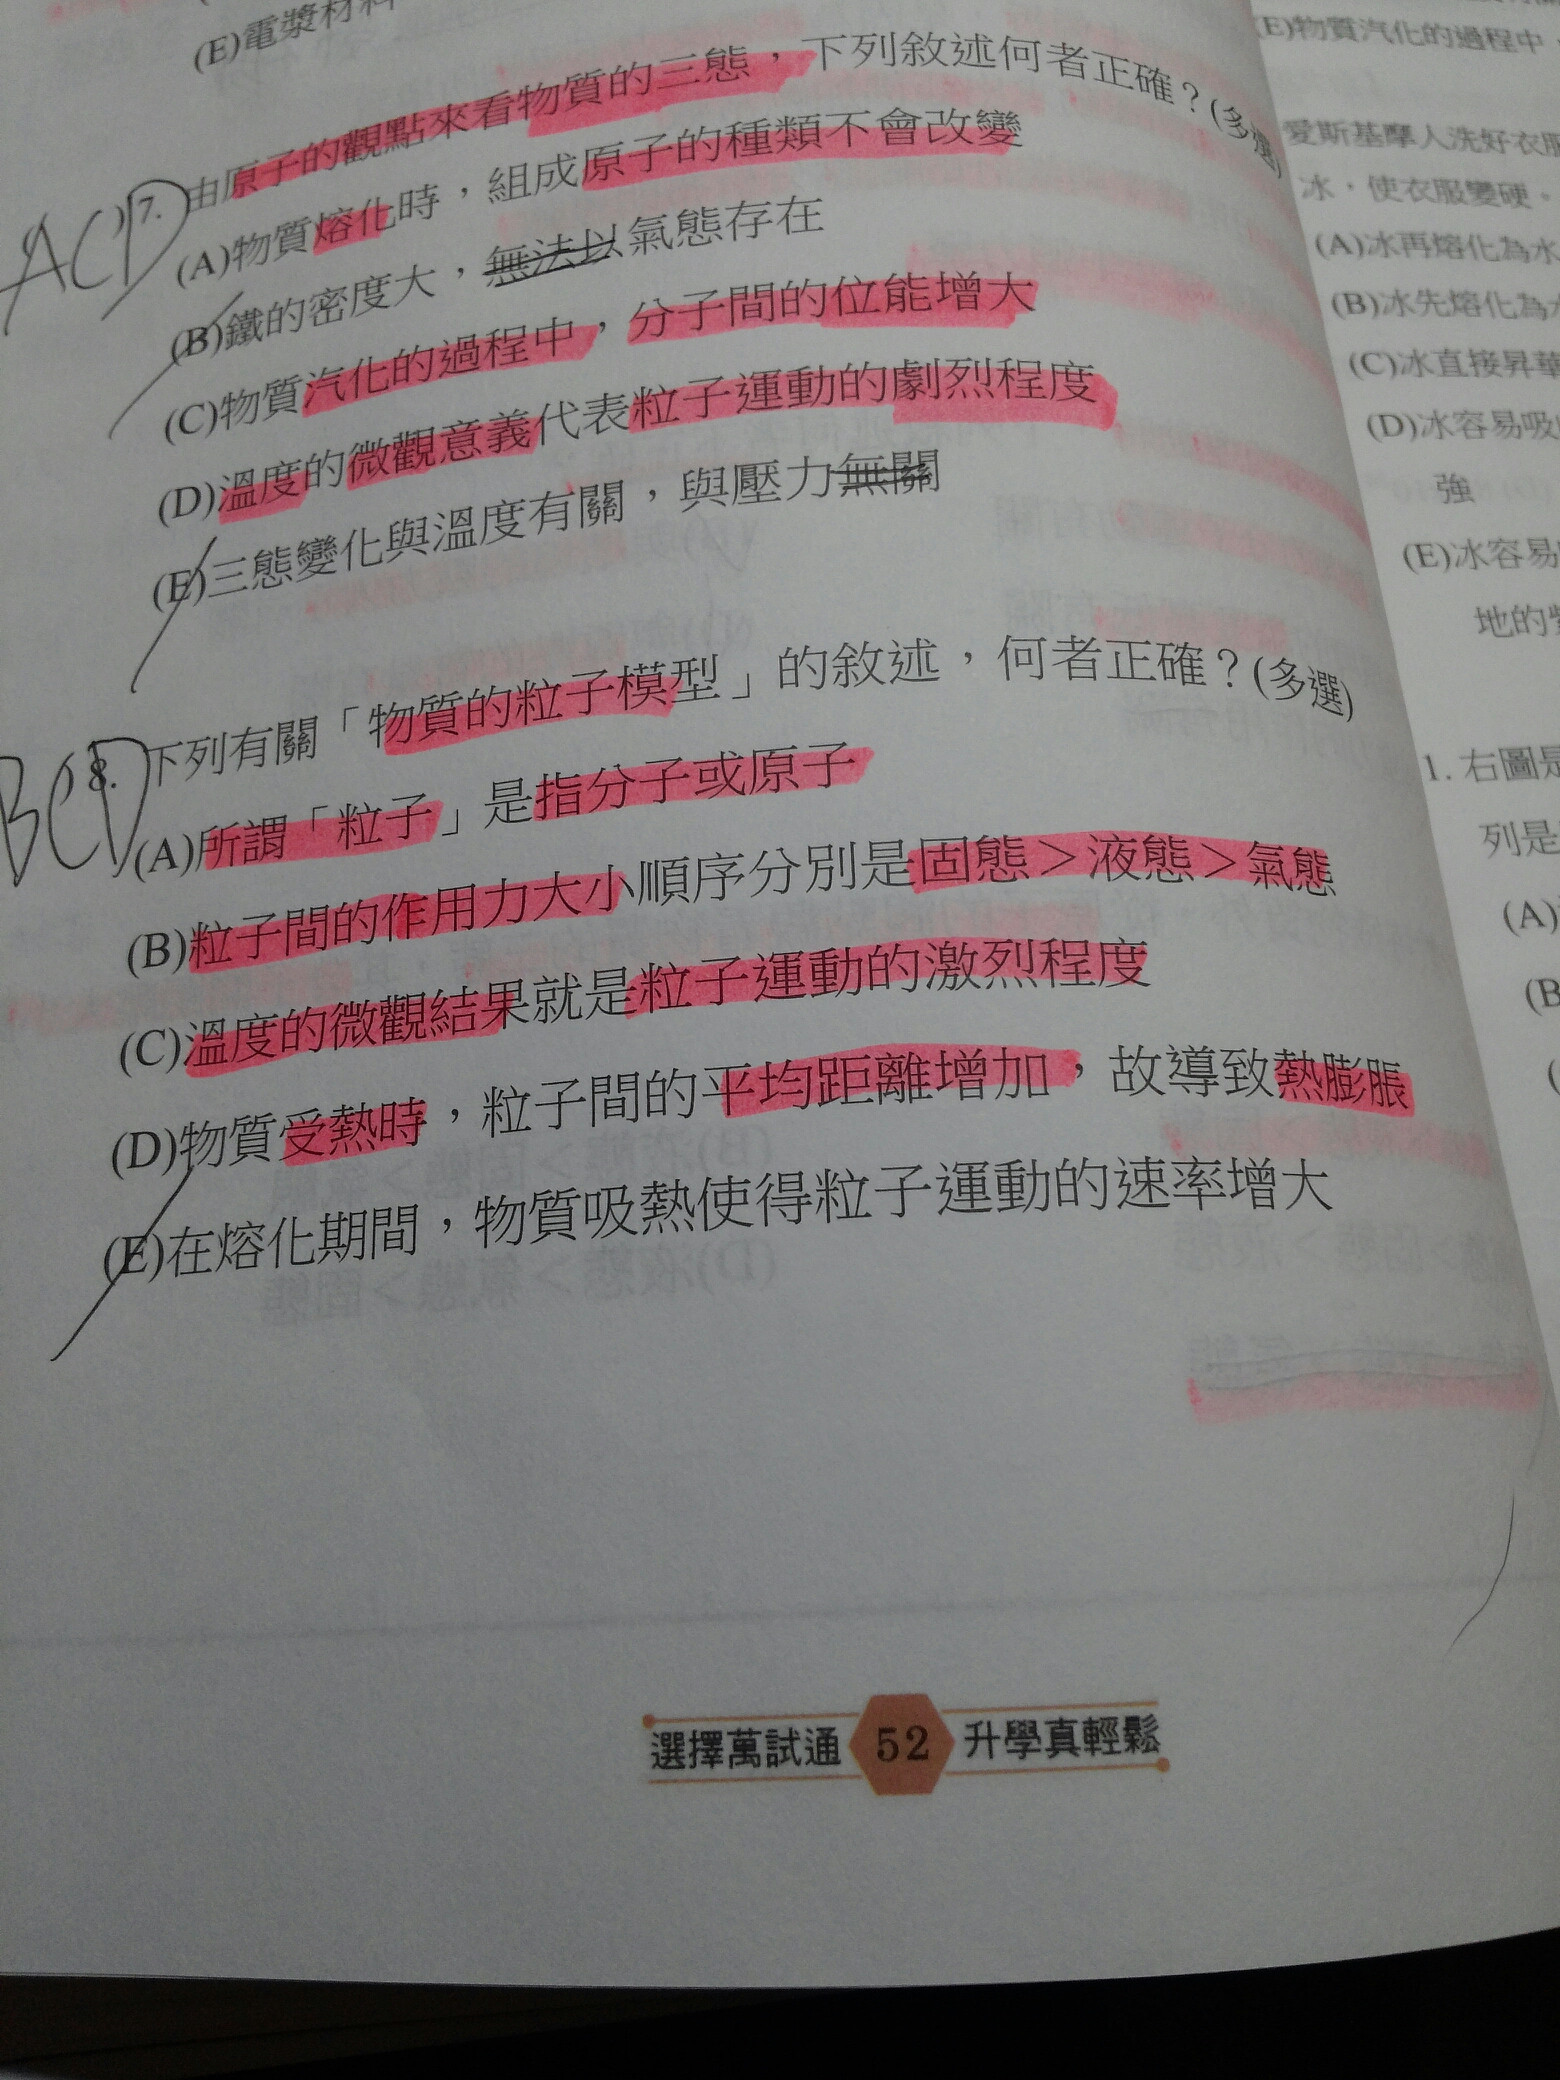 (E)電漿材料
ACD
7. 由原子的觀點來看物質的三態，下列敘述何者正確？(多選)
(A)物質熔化時，組成原子的種類不會改變
(B)鐵的密度大，無法以氣態存在
(C)物質汽化的過程中，分子間的位能增大
(D)溫度的微觀意義代表粒子運動的劇烈程度
(E)三態變化與溫度有關，與壓力無關
BCD
8. 下列有關「物質的粒子模型」的敘述，何者正確？(多選)
(A)所謂「粒子」是指分子或原子
(B)粒子間的作用力大小順序分別是固態＞液態＞氣態
(C)溫度的微觀結果就是粒子運動的激烈程度
(D)物質受熱時，粒子間的平均距離增加，故導致熱膨脹
(E)在熔化期間，物質吸熱使得粒子運動的速率增大
選擇萬試通 52 升學真輕鬆
(E)物質汽化的過程中，
愛斯基摩人洗好衣服
冰，使衣服變硬。
(A)冰再熔化為水
(B)冰先熔化為水
(C)冰直接昇華
(D)冰容易吸
強
(E)冰容易
地的
1. 右圖是
列是
(A)
(B
(